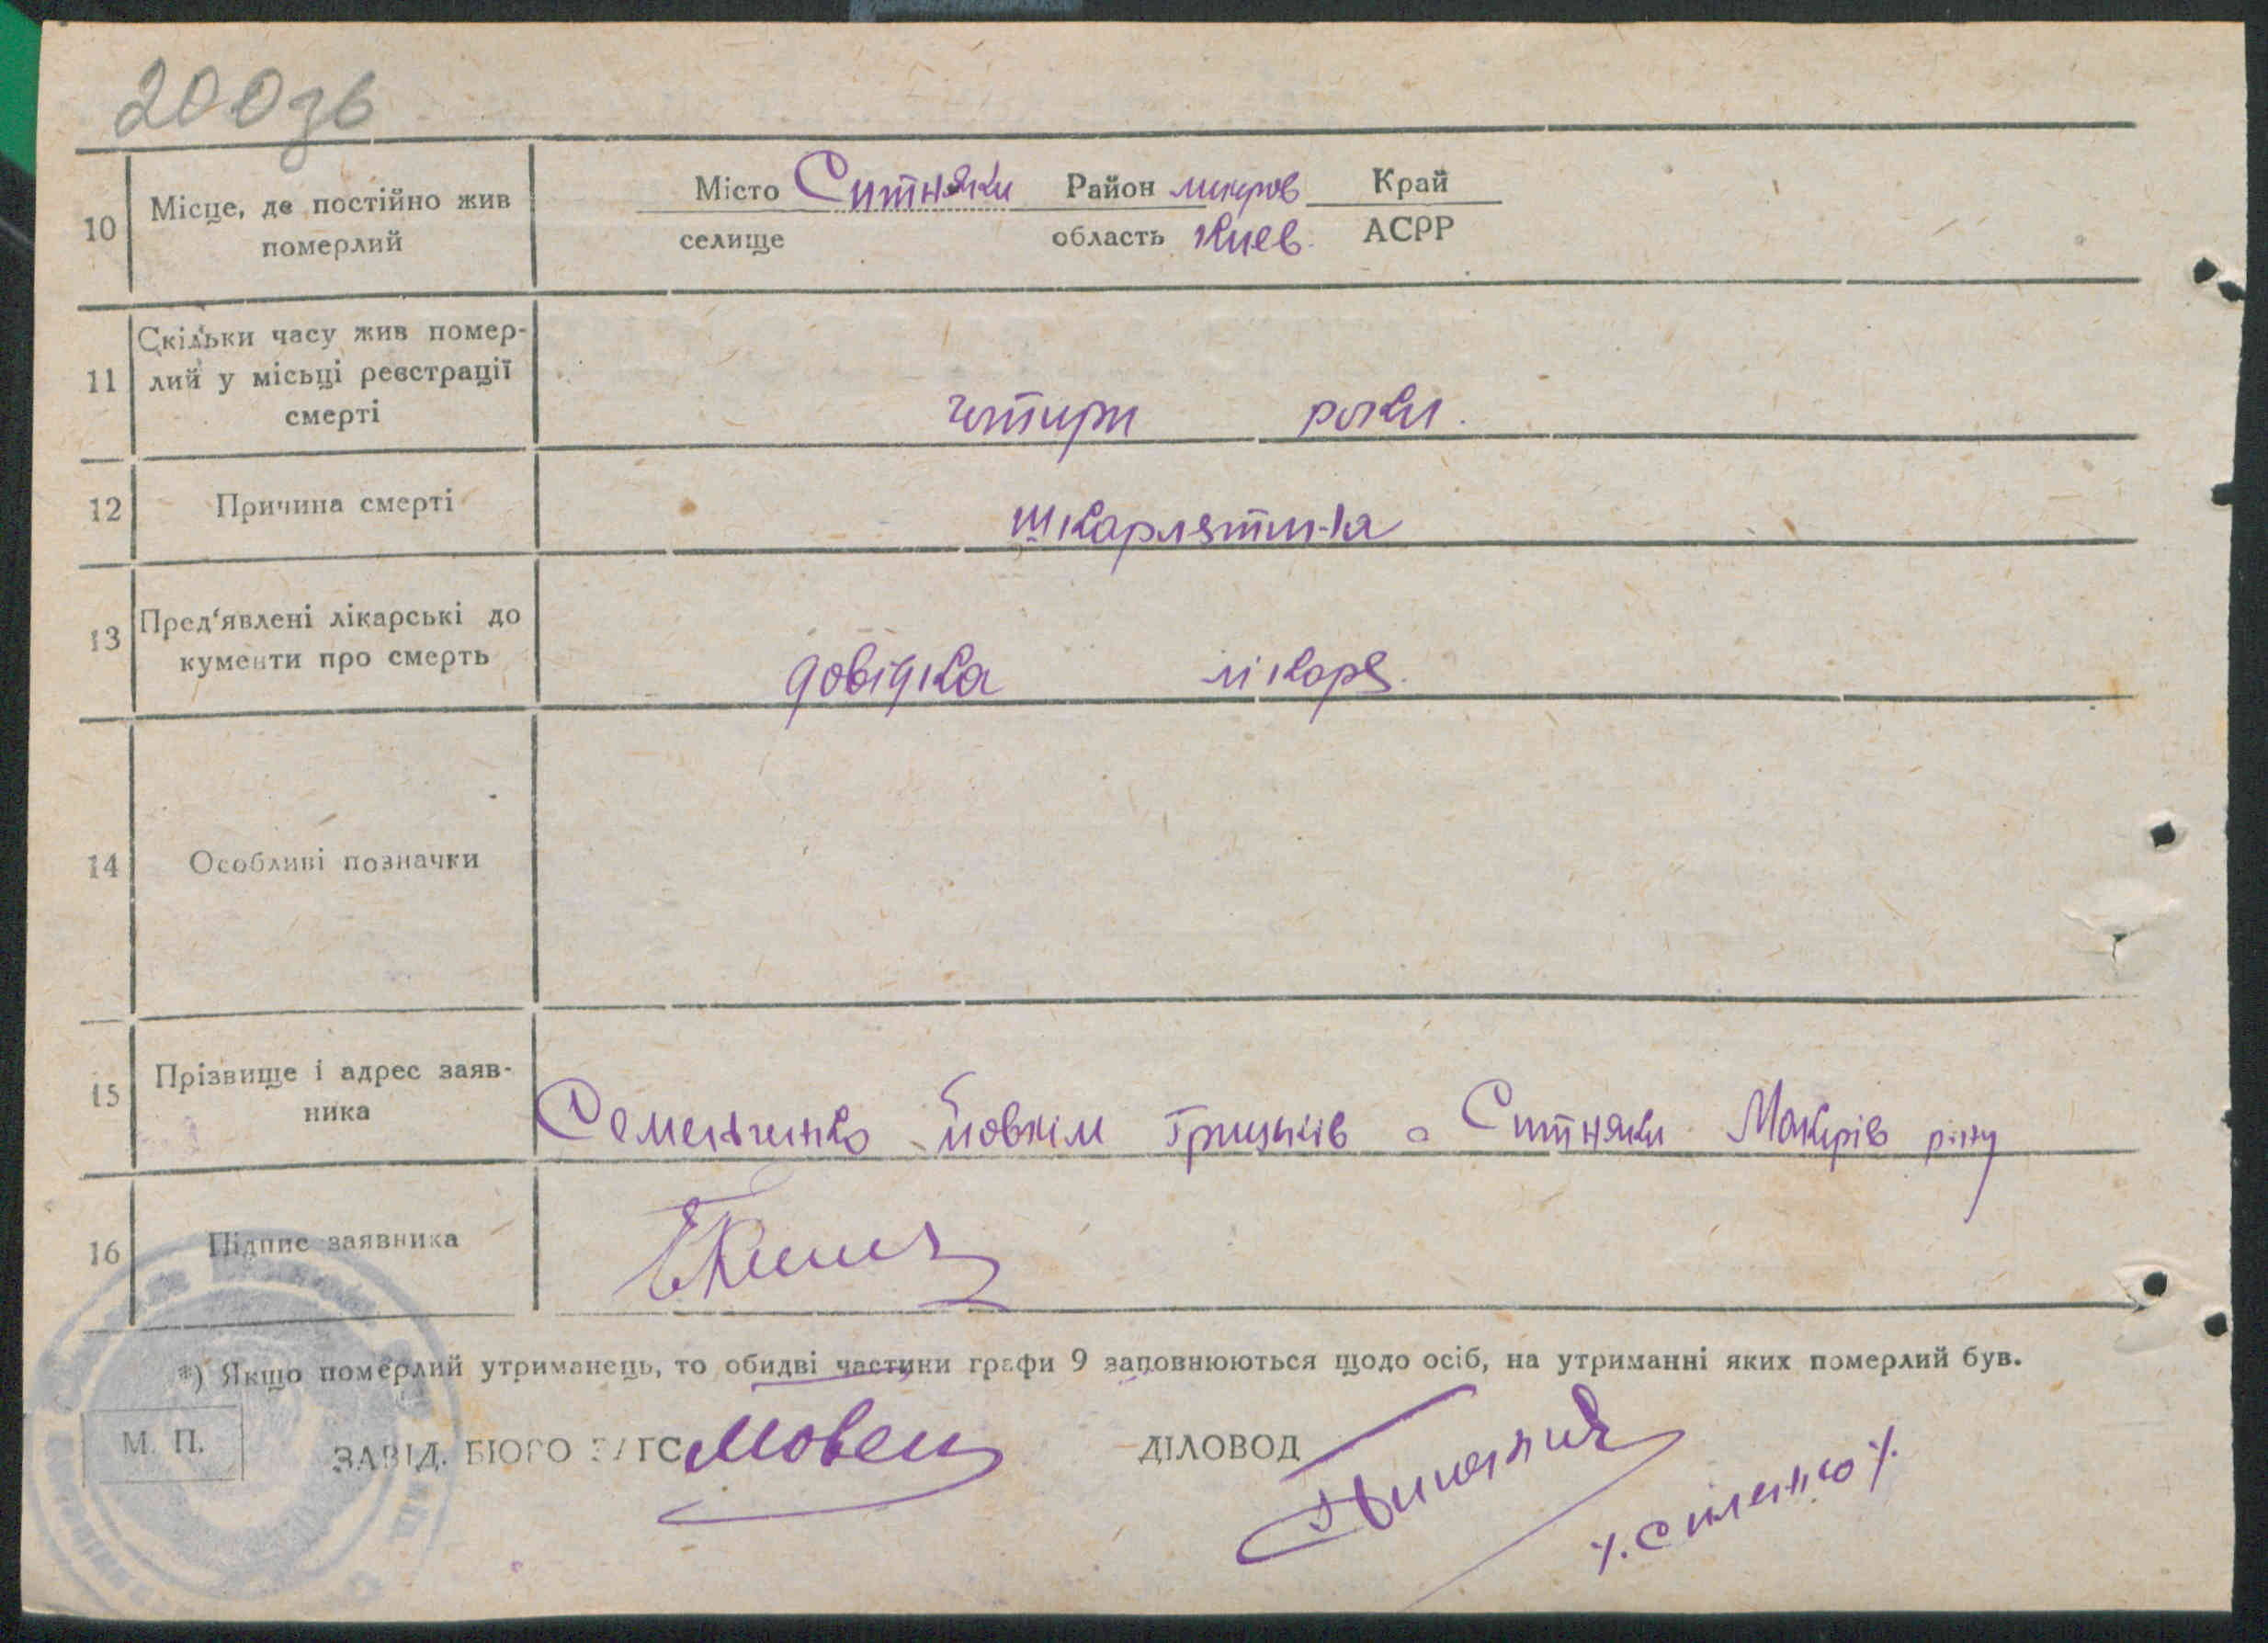 200зв
10 Місце, де постійно жив Місто Ситняки Район макров Край
померлий селище область Киев. АСРР
11 Скільки часу жив помер-
лий у місьці реєстрації
смерті чотири роки.
12 Причина смерті шкарлятина
13 Пред'явлені лікарські до
кументи про смерть довідка лікаря.
14 Особливі позначки
15 Прізвище і адрес заяв-
ника Семельченко Йовхім Грицьків с Ситняки Макрів р-ну
16 Підпис заявника
*) Якщо померлий утриманець, то обидві частини графи 9 заповнюються щодо осіб, на утриманні яких померлий був.
М. П. ЗАВІД. БЮРО ЗАГС ДІЛОВОД